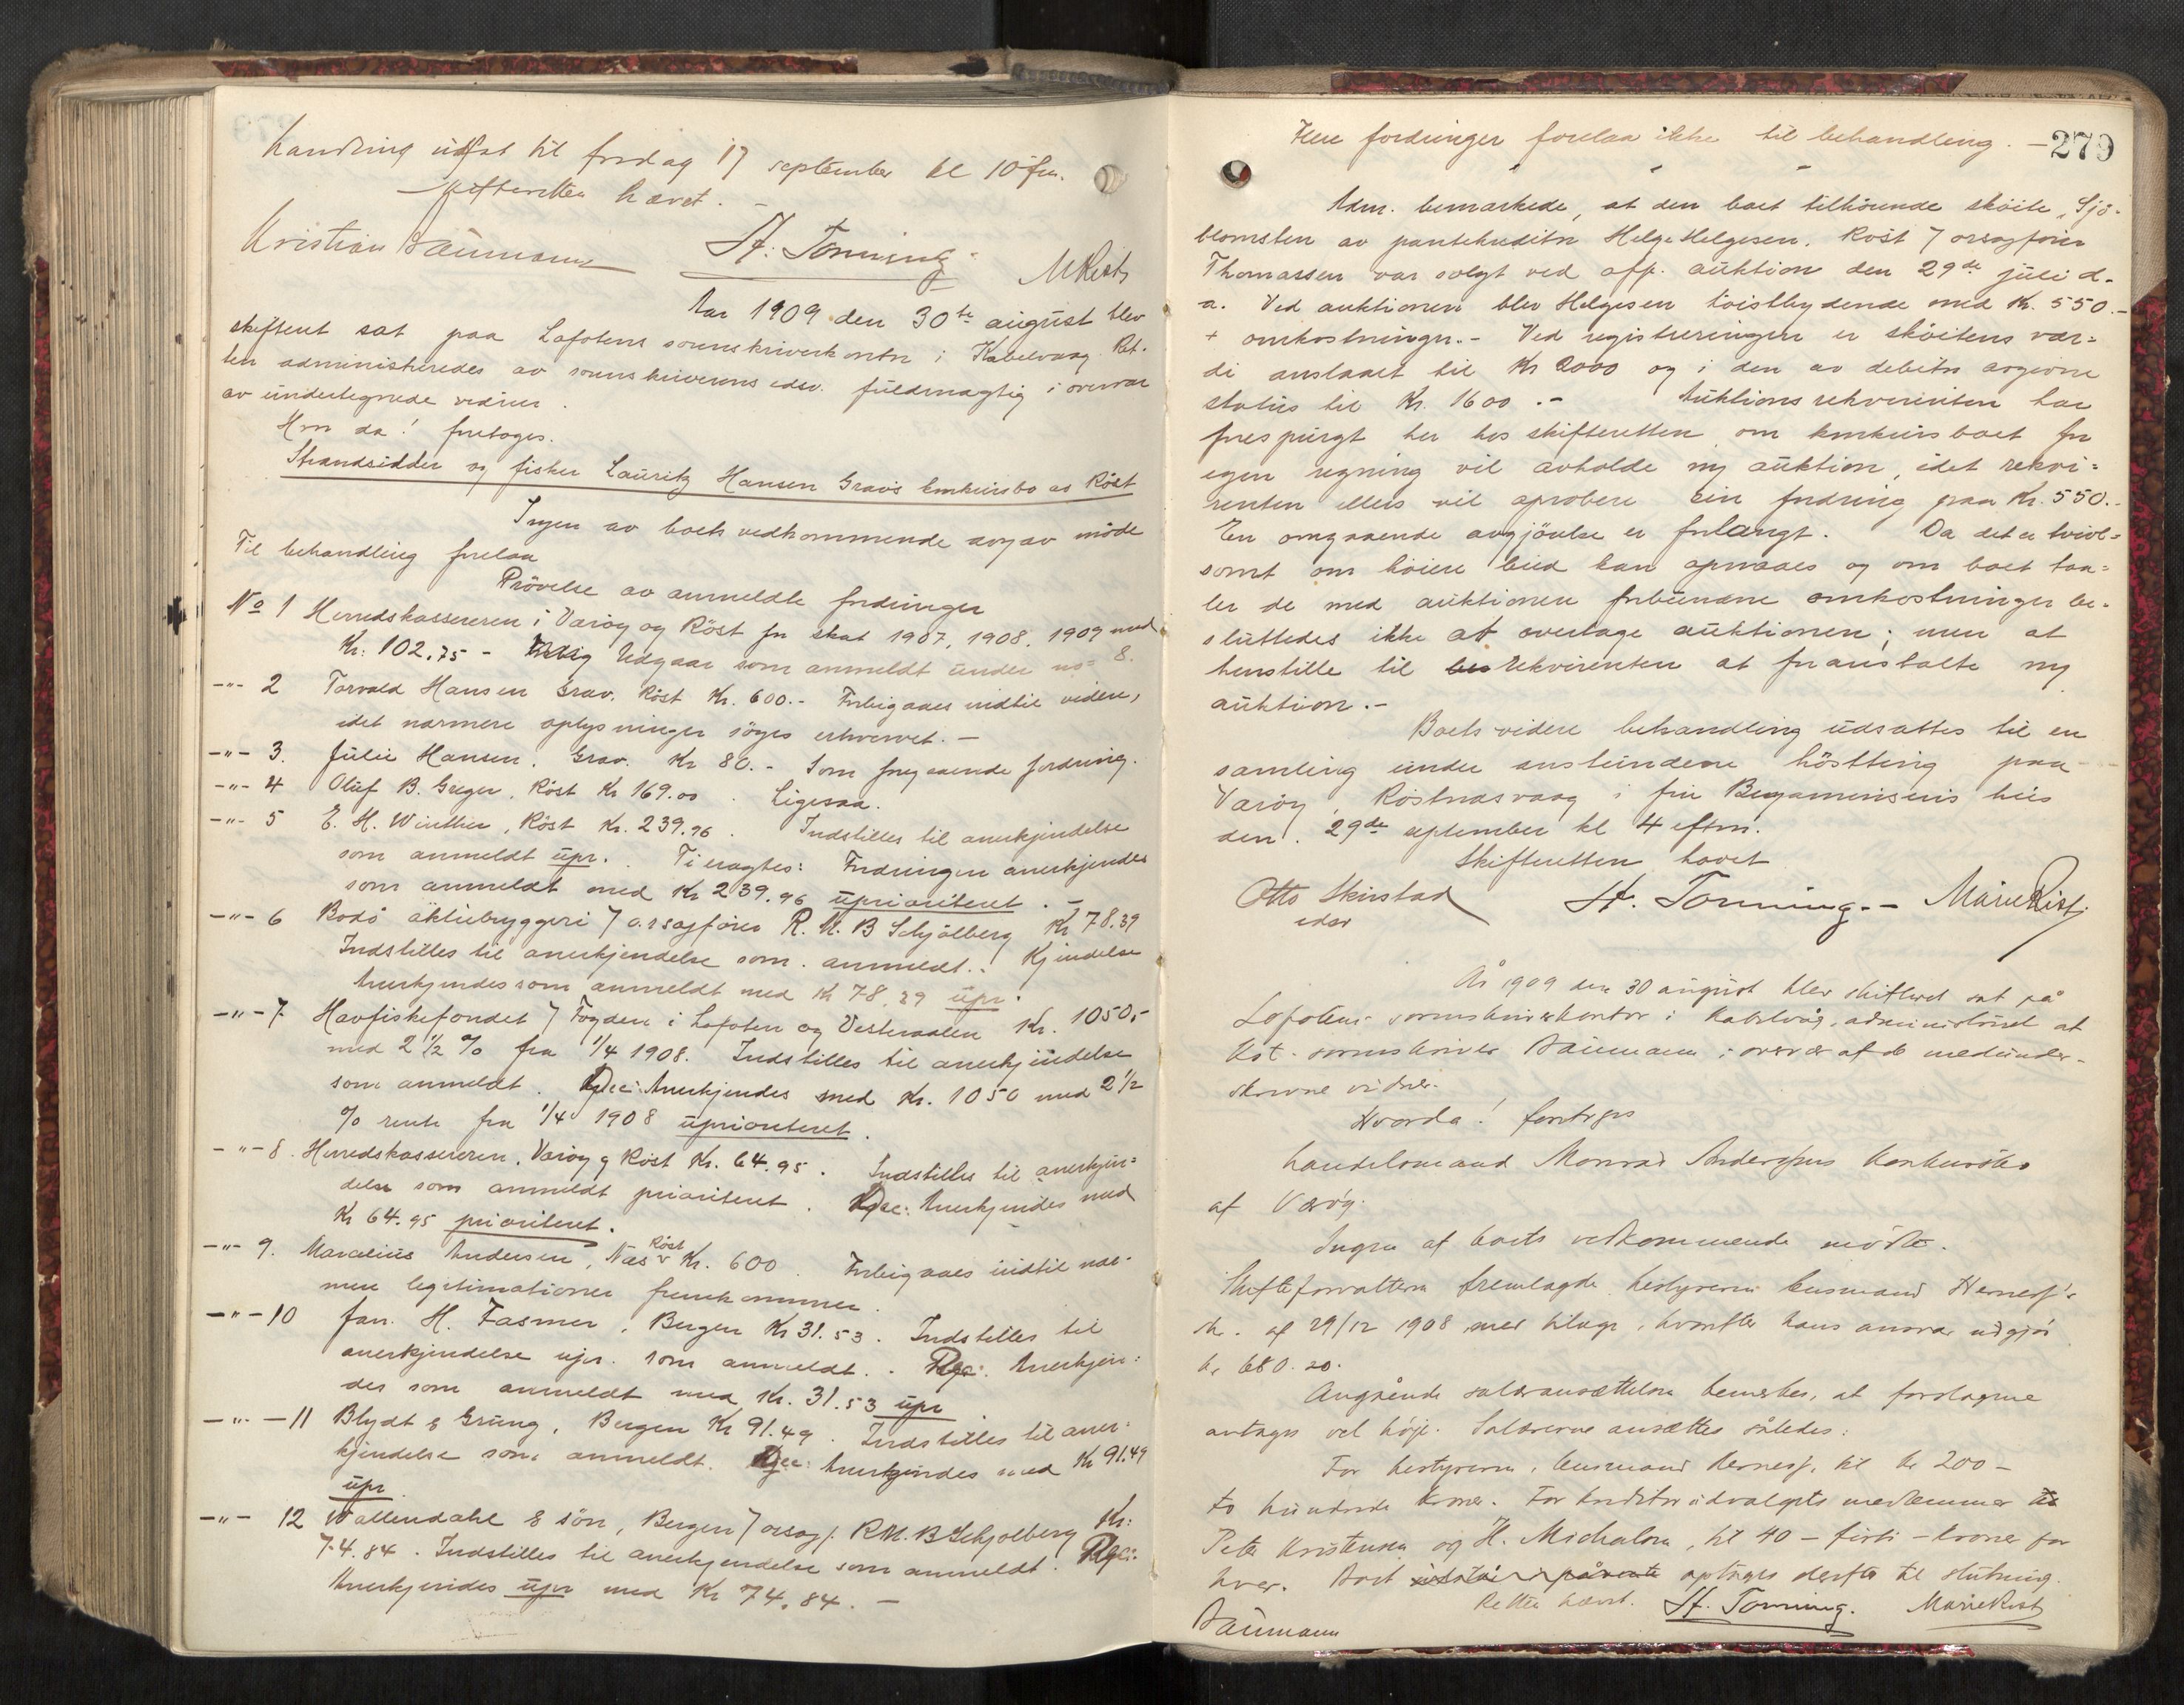 handling udsat til fredag 17 september kl 10 fm.
Skifteretten hævet. -
Kristian Baumann St. Tonning. MRist
Aar 1909 den 30te august blev
skifteret sat paa Lofotens sorenskriverkontor i Kabelvaag. Ret-
ten administreredes av sorenskriverens edsv. fuldmægtig i overvær
av undertegnede vidner.
Hvor da! foretoges.
Strandsidder og fisker Lauritz Hansen Gravs konkursbo av Röst
Ingen av boets vedkommende avgav möde
Til behandling forelaa
Prövelse av anmeldte fordringer
No 1 Herredskassereren i Væröy og Röst for skat 1907, 1908, 1909 med
Kr. 102,75 - Udgaar som anmeldt under no= 8.
-"- 2 Torvald Hansen Grav, Röst Kr. 600.- Forbigaaes indtil videre,
idet nærmere oplysninger söges erhvervet. -
-"- 3. Julie Hansen, Grav. Kr 80.- Som foregaaende fordring.
-"- 4 Oluf B. Greger, Röst Kr 169.00. Ligesaa.
-"- 5 E. H. Winther, Röst Kr. 239.96. Indstilles til anerkjendelse
som anmeldt upr. Ti eragtes: Fordringen anerkjendes
som anmeldt med Kr 239.96 uprioriteret. -
-"- 6 Bodö aktiebryggeri / o.r.sagförer R. M. B Schjölberg Kr 78.39
Indstilles til anerkjendelse som anmeldt. Kjendelse
Anerkjendes som anmeldt med Kr 78.39 upr.
-"- 7 Havfiskefondet / Fogden i Lofoten og Vesteraalen Kr. 1050,-
med 2 1/2 % fra 1/4 1908. Indstilles til anerkjendelse
som anmeldt. Dec: Anerkjendes med Kr. 1050 med 2 1/2
% rente fra 1/4 1908 uprioriteret.
-"- 8. Herredskassereren, Væröy & Röst Kr. 64.95. Indstilles til anerkjen=
delse som anmeldt prioriteret. Dec: Anerkjendes med
Kr 64.95 prioriteret.
-"- 9. Marcelius Andersen, Næs Röst Kr. 600. Forbigaaes indtil nær-
mere legitimationer fremkommer.
-"- 10 Jan. H. Fasmer, Bergen Kr 31.53. Indstilles til
anerkjendelse upr. som anmeldt. Anerkjen=
des som anmeldt med Kr. 31.53 upr.
-"- 11 Blydt & Grung, Bergen Kr 91.49. Indstilles til aner=
kjendelse som anmeldt. Dec: Anerkjendes med Kr 91.49
upr.
-"- 12 Wallendahl & sön, Bergen / orsagf. R.M.B Schjolberg Kr:
74.84. Indstilles til anerkjendelse som anmeldt.
Anerkjendes upr med Kr 74.84. -
279
Flere fordringer forelaa ikke til behandling. -
Adm. bemærkede, at den boet tilhörende sköite "Sjö-
blomsten av pantekreditor Helge Helgesen, Röst / orsagförer
Thomassen var solgt ved off. auktion den 29de juli d.
a. Ved auktionen blev Helgesen höistbydende med Kr. 550.-
+ omkostninger.- Ved registreringen er sköitens vær=
di anslaaet til Kr 2000 og i den av debitor avgivne
status til Kr. 1600.- Auktionsrekvirenten har
forespurgt her hos skifteretten om konkursboet for
egen regning vil avholde ny auktion, idet rekvi=
renten ellers vil aprobere sin fordring paa Kr. 550.-
En omgaaende avgjörelse er forlangt. Da det er tvivl=
somt om höiere bud kan opnaaes og om boet taa=
ler de med auktionen forbundne omkostninger be-
sluttedes ikke at overtage auktionen; men at
henstille til rekvirenten at foranstalte ny
auktion.-
Boets videre behandling udsattes til en
samling under anstundende höstting paa
Væröy, Röstnæsvaag i fru Benjaminsens hus
den 29de september kl 4 eftm.
Skifteretten hævet
Otto Skirstad St. Tonning.- Marie Rist
edsv
År 1909 den 30 august blev skifteret sat på
Lofotens sorenskriverkontor i Kabelvåg, administreret af
Kst. sorenskriver Baumann i overvær af de medunder-
skrevne vidner.
Hvorda! foretoges
handelsmand Monrad Andersens konkursbo
af Værøy.
Ingen af boets vedkommende mødte.
Skifteforvalteren fremlagde bestyreren lensmand Herness's
sk. af 29/12 1908 med bilage, hvorefter hans ansvar udgjør
kr 680.20.
Angående salæransættelsen bemerkes, at forslagene
antages vel høje. Salærerne ansættes således:
For bestyreren, lensmand Herness, til kr 200 -
to hundrede kroner. For kreditorudvalgets medlemmer
Peter Kristensen og H. Michalsen, til 40 - førti - kroner for
hver. Boet optages derefter til slutning.
Retten hævet. St. Tonning. Marie Rist
Baumann